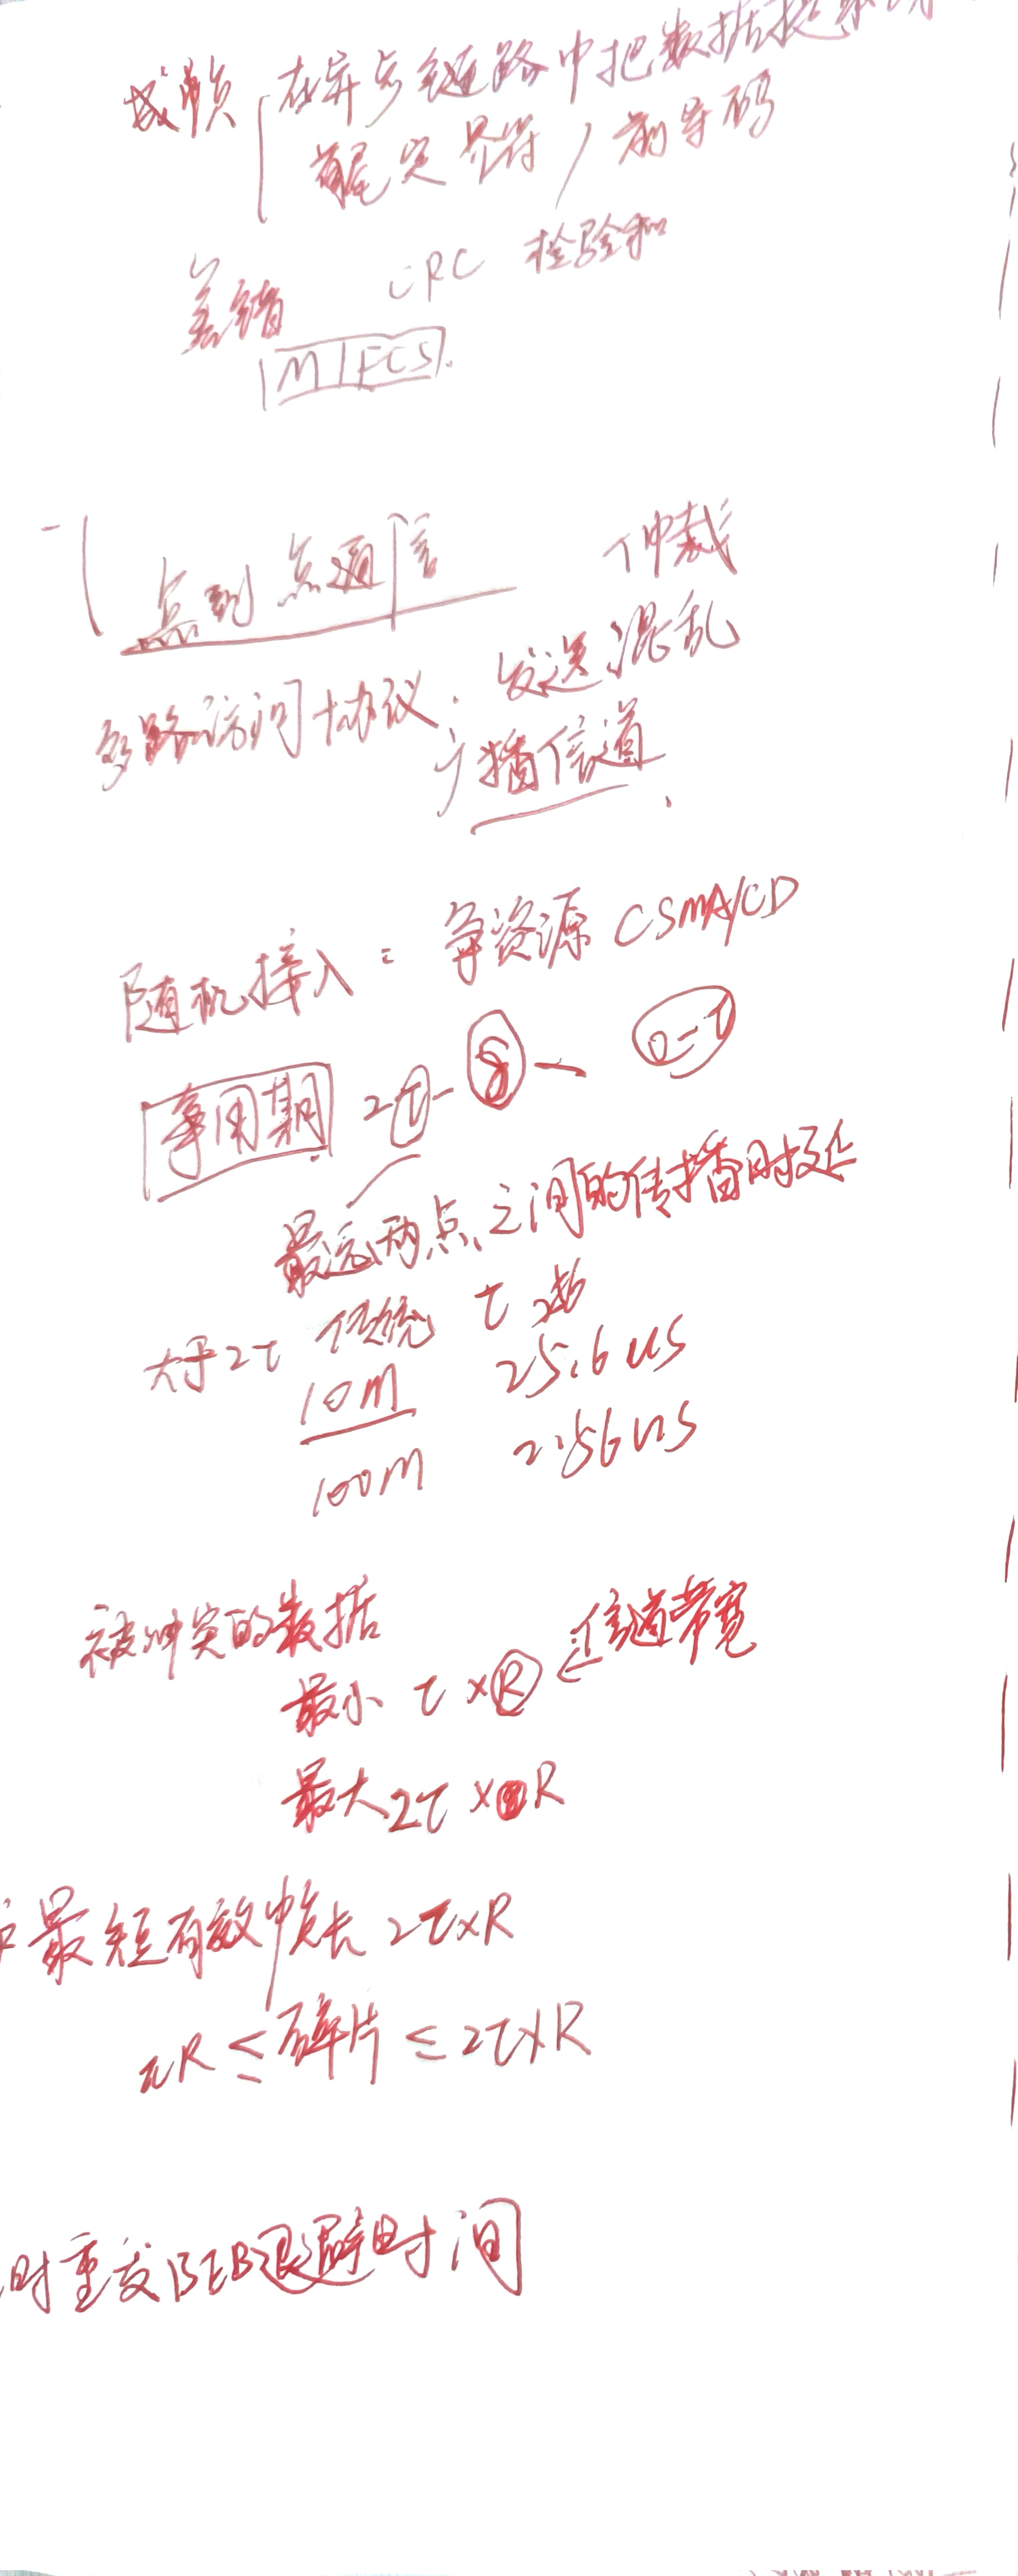 成帧 在异步链路中把数据提
首尾定界符 / 前导码
差错 CRC 检验和
M|FCS
点到点通信 仲裁
多路访问协议: 发送混乱
广播信道
随机接入: 争资源 CSMA/CD
争用期 2τ-δ 0-τ
最远两点之间的传播时延
大于2τ 传统 τ
10M 25.6us
100M 2.56us
被冲突的数据
最小 τ×R 信道带宽
最大 2τ×R
最短有效帧长 2τ×R
τR ≤ 碎片 ≤ 2τ×R
时重发BEB退避时间